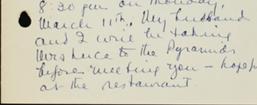 8:30 pm on Monday,
March 11th. My husband
and I will be taking
Mrs Luce to the Pyramids
before meeting you — hope
at the restaurant